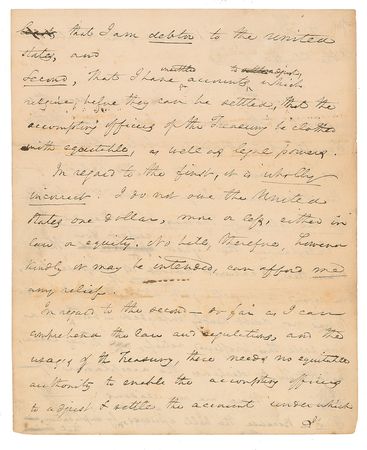 that I am debtor to the United
States, and
Second, that I have accounts, which
require, before they can be settled, that the
accounting officers of the Treasury be clothed
with equitable, as well as legal powers.
In regard to the first, it is wholly
incorrect. I do not owe the United
States one dollar, more or less, either in
law or equity. No bill, therefore, however
kindly it may be intended, can afford me
any relief.
In regard to the second—so far as I can
comprehend the law and regulations, and the
usages of the Treasury, there needs no equitable
authority to enable the accounting officers
to adjust & settle the account under which
I